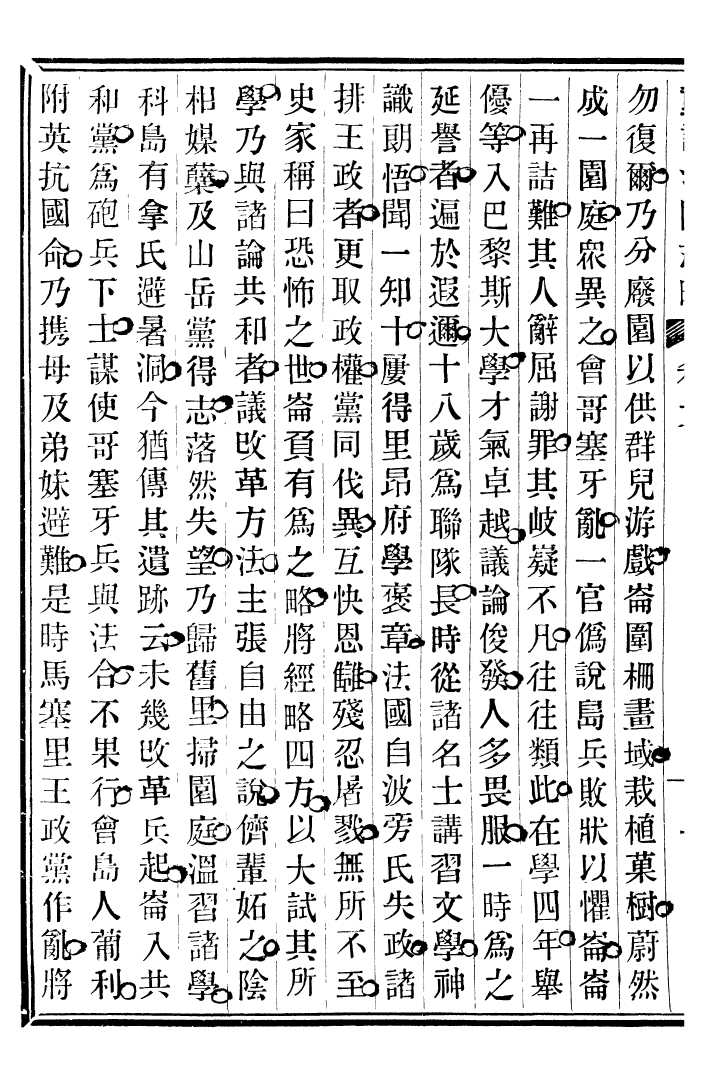 勿復爾。乃分廢園以供群兒游戲。崙圍柵畫域。栽植菓樹。蔚然
成一園庭。衆異之。會哥塞牙亂。一官僞說島兵敗狀以懼崙。崙
一再詰難。其人辭屈謝罪。其岐嶷不凡。往往類此。在學四年。舉
優等。入巴黎斯大學。才氣卓越。議論俊發。人多畏服。一時爲之
延譽者。遍於遐邇。十八歲爲聯隊長。時從諸名士講習文學。神
識朗悟。聞一知十。屢得里昂府學褒章。法國自波旁氏失政。諸
排王政者。更取政權。黨同伐異。互快恩讎。殘忍屠戮。無所不至。
史家稱曰恐怖之世。崙負有爲之略。將經略四方。以大試其所
學。乃與諸論共和者。議改革方法。主張自由之說。儕輩妬之。陰
相媒糵。及山岳黨得志。落然失望。乃歸舊里。掃園庭。溫習諸學。
科島有拿氏避暑洞。今猶傳其遺跡云。未幾改革兵起。崙入共
和黨。爲砲兵下士。謀使哥塞牙兵與法合。不果行。會島人葡利。
附英抗國命。乃携母及弟妹避難。是時馬塞里王政黨作亂。將